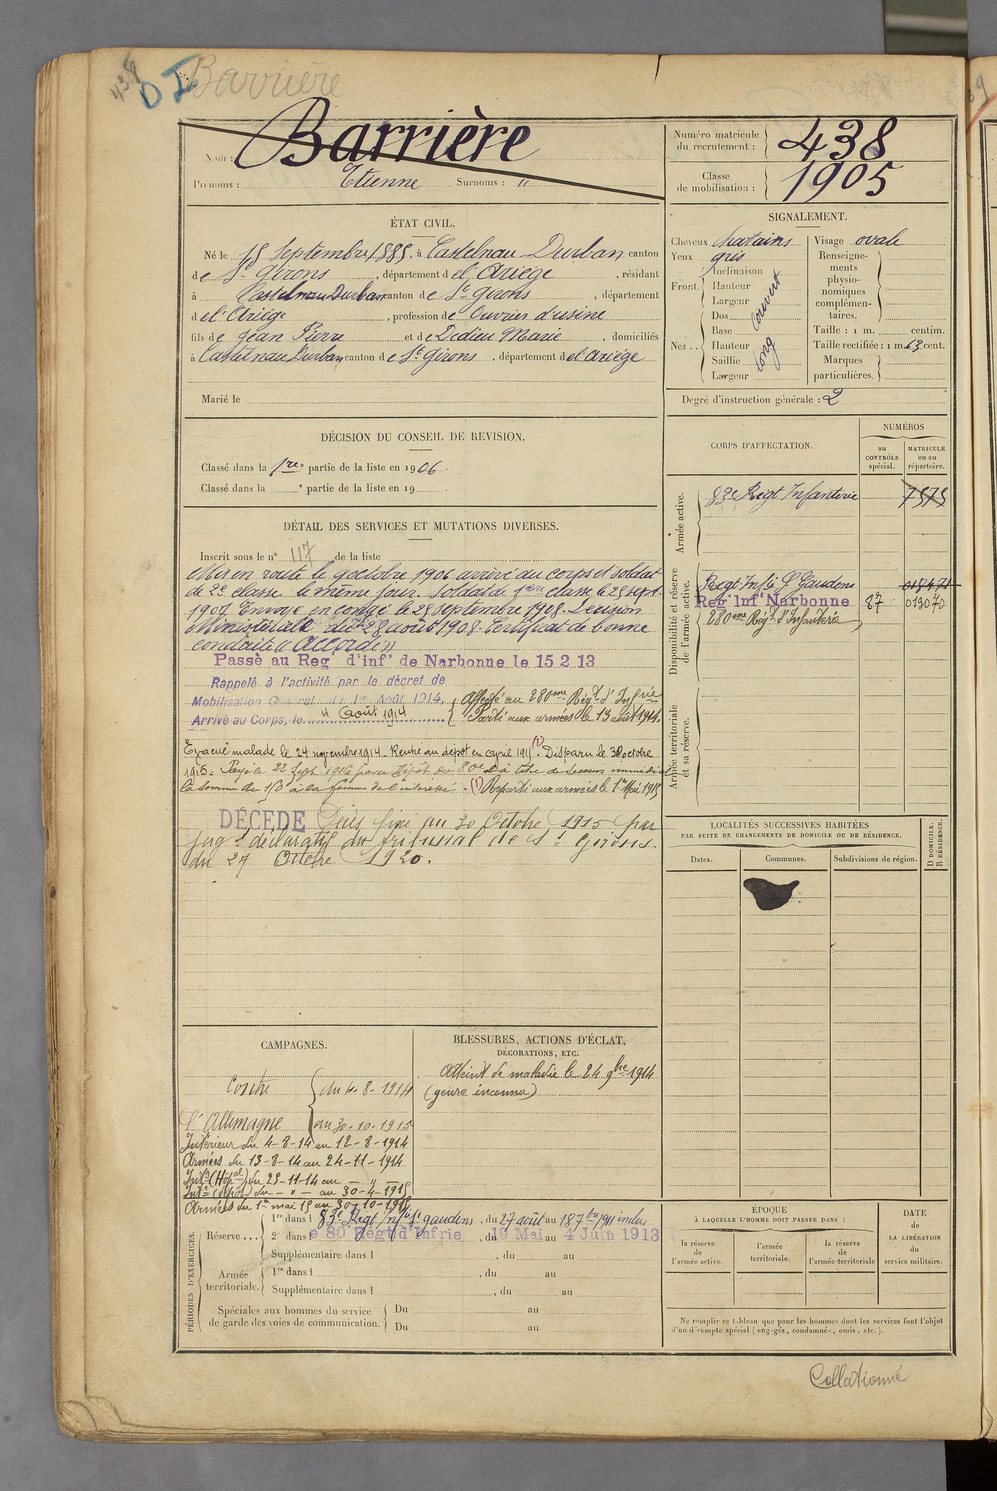 438
D I Barrière
Nom : Barrière
Prénoms : Etienne Surnoms : "
Numéro matricule du recrutement : 438
Classe de mobilisation : 1905
ÉTAT CIVIL.
Né le 15 Septembre 1885, à Castelnau Durban canton
de St Girons, département del Ariège, résidant
à Castelnau Durban canton de St Girons, département
del Ariège, profession de Ouvrier d'usine
fils de Jean Pierre et de Dedieu Marie, domiciliés
à Castelnau Durban canton de St Girons, département del Ariège
Marié le
SIGNALEMENT.
Cheveux chatains
Yeux gris
Front. Inclinaison
Hauteur
Largeur
couvert
Nez .. Dos
Base
Hauteur
Saillie
Largeur
long
Visage ovale
Renseignements physionomiques complémentaires.
Taille : 1 m. centim.
Taille rectifiée : 1 m. 63 cent.
Marques particulières.
Degré d'instruction générale : 2
DÉCISION DU CONSEIL DE REVISION.
Classé dans la 1re partie de la liste en 1906.
Classé dans la e partie de la liste en 19
CORPS D'AFFECTATION.
NUMÉROS
au CONTRÔLE spécial.
MATRICULE ou au répertoire.
Armée active.
83e Régt Infanterie 7575
Disponibilité et réserve de l'armée active.
Régt Infie St Gaudens
Reg' Inf' Narbonne 87 013070
280me Régt d'Infanterie
Armée territoriale et sa réserve.
DÉTAIL DES SERVICES ET MUTATIONS DIVERSES.
Inscrit sous le n° 117 de la liste
Mis en route le 9 octobre 1906 arrivé au corps et soldat
de 2e classe le même jour. Soldat de 1ere classe le 25 sept.
1907 Envoyé en congé le 25 septembre 1908. Décision
Ministérielle du 28 août 1908. Certificat de bonne
conduite "Accordé"
Passé au Reg' d'inf' de Narbonne le 15 2 13
Rappelé à l'activité par le décret de
Mobilisation Général du 1er Août 1914.
Arrivé au Corps, le 4 Août 1914
Affecté au 280me Régt d'Infrie
Parti aux armées le 13 août 1914.
Evacué malade le 24 novembre 1914. Rentré au dépôt en avril 1915 (1). Disparu le 30 octobre
1915. Payé le 22 Sept 1916 par le Dépôt du 80e à titre de secours immédiat
la somme de 150 à la femme de l'intéressé. (1) Reparti aux armées le 1er Mai 1915
DÉCÉDÉ Décès fixé au 30 Octobre 1915 par
jugt déclaratif du tribunal de St Girons
du 27 Octobre 1920.
LOCALITÉS SUCCESSIVES HABITÉES
PAR SUITE DE CHANGEMENTS DE DOMICILE OU DE RÉSIDENCE.
Dates. Communes. Subdivisions de région. D DOMICILE. R RÉSIDENCE.
CAMPAGNES.
Contre du 4-8-1914
l'Allemagne au 30-10-1915
Intérieur du 4-8-14 au 12-8-1914
Armées du 13-8-14 au 24-11-1914
Intr (Hôpal) du 25-11-14 au - " -
Intr (dépôt) du - " - au 30-4-1915
Armées du 1er mai 15 au 30-10-1915
BLESSURES, ACTIONS D'ÉCLAT,
DÉCORATIONS, ETC.
Atteint de maladie le 24 9bre 1914
(genre inconnu)
PÉRIODES D'EXERCICES.
Réserve ... 1re dans l 83e Régt Infie St gaudens, du 27 août au 18 7bre 1911 inclus
2e dans le 80 Rég' d'Infrie, du 19 Mai au 4 Juin 1913
Supplémentaire dans l , du au
Armée territoriale. 1re dans l , du au
Supplémentaire dans l , du au
Spéciales aux hommes du service de garde des voies de communication. Du au
Du au
ÉPOQUE
À LAQUELLE L'HOMME DOIT PASSER DANS :
la réserve de l'armée active.
l'armée territoriale.
la réserve de l'armée territoriale
DATE DE LA LIBÉRATION du service militaire.
Ne remplir ce tableau que pour les hommes dont les services font l'objet
d'un décompte spécial (engagés, condamnés, omis, etc.).
Collationné